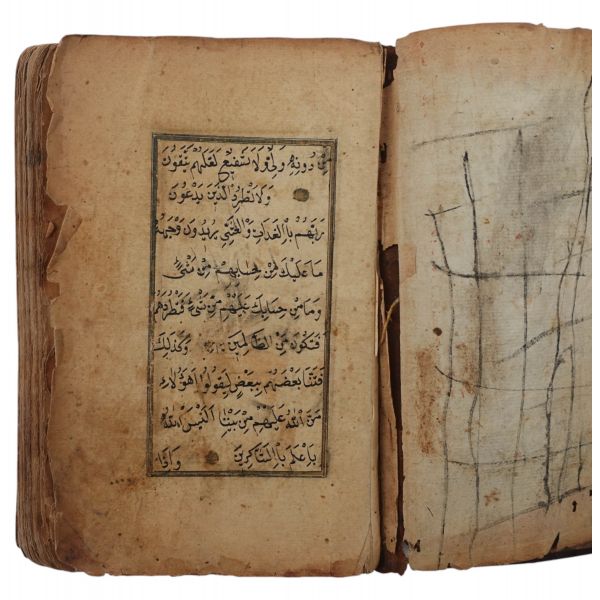 مِنْ دُونِهِ وَلِيٌّ وَلَا شَفِيعٌ لَعَلَّهُمْ يَتَّقُونَ
وَلَا تَطْرُدِ الَّذِينَ يَدْعُونَ
رَبَّهُمْ بِاالْغَدَاتِ وَالْعَشِيِّ يُرِيدُونَ وَجْهَهُ
مَا عَلَيْكَ مِنْ حِسَابِهِمْ مِنْ شَيْءٍ
وَمَا مِنْ حِسَابِكَ عَلَيْهِمْ مِنْ شَيْءٍ فَتَطْرُدَهُمْ
فَتَكُونَ مِنَ الظَّالِمِينَ وَكَذَلِكَ
فَتَنَّا بَعْضَهُمْ بِبَعْضٍ لِيَقُولُوا اَهَؤُلَاءِ
مَنَّ اللَّهُ عَلَيْهِمْ مِنْ بَيْنِنَا اَلَيْسَ اللَّهُ
بِاَعْلَمَ بِاالشَّاكِرِينَ وَاِذَا